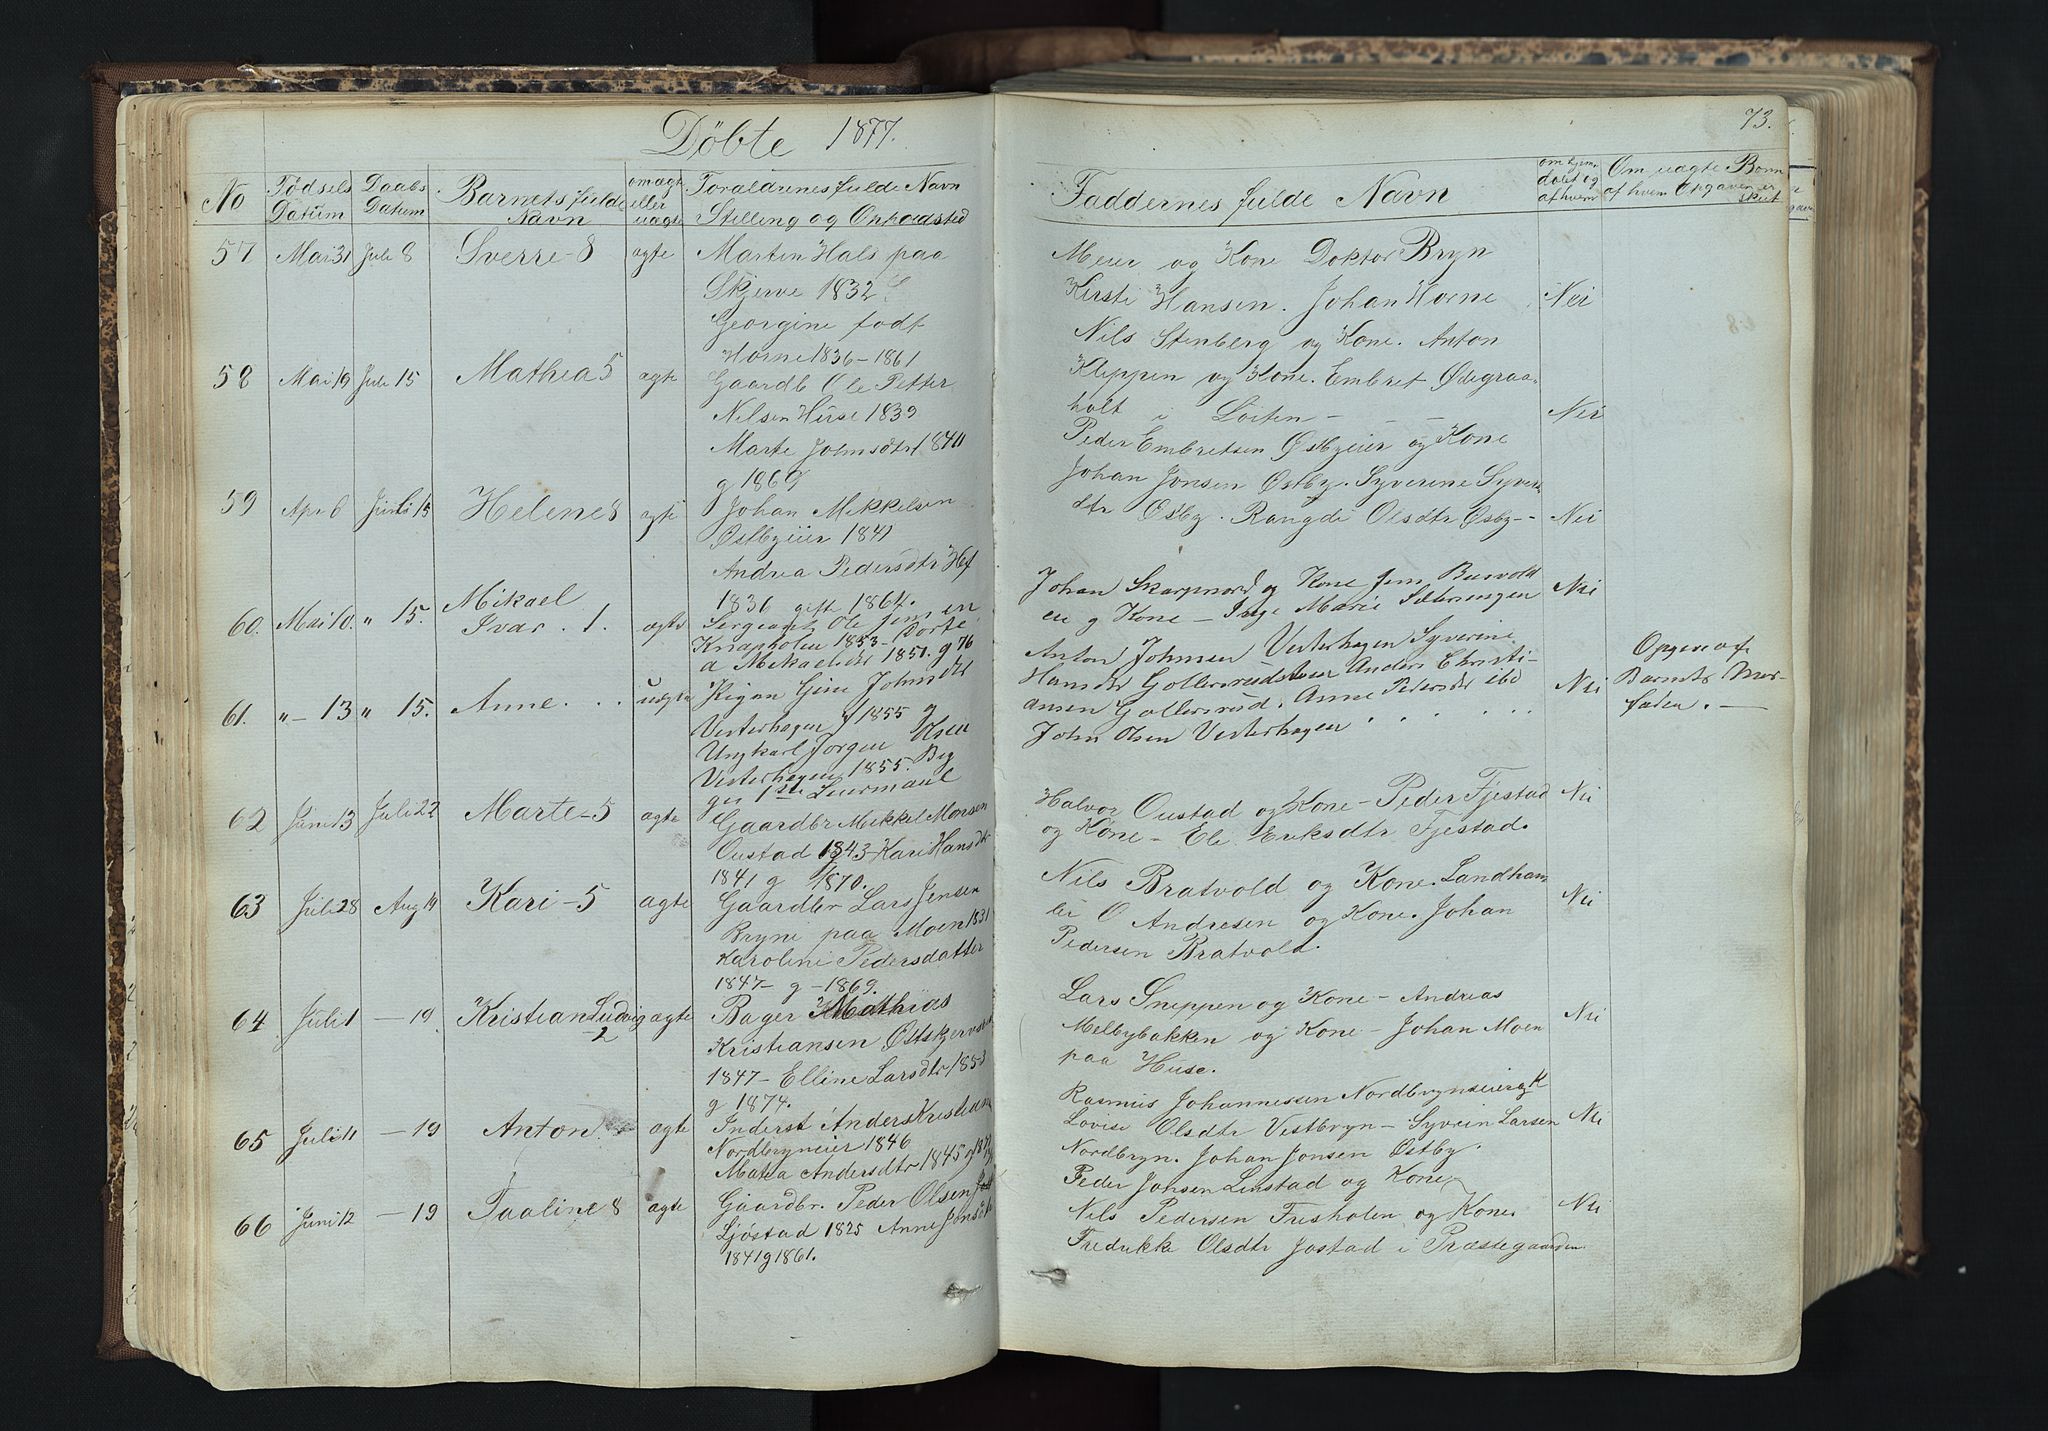 Döbte 1877.
No
Födsels Datum
Daabs Datum
Barnets fulde Navn
om ægte eller uægte
Foraldrenes fulde Navn
Stilling og Opholdsted
57 Mai 31 Juli 8 Sverre - 8 ægte Martin Hals paa
Skjerve 1832
Georgine født
Horne 1836 - 1861
58 Mai 19 Juli 15 Mathea 5 ægte Gaardb Ole Petter
Nilsen Huse 1839
Marte Johnsdtr 1840
g 1869
59 Apr 6 Juli 15 Helene 8 ægte Johan Mikkelsen
Østbyeier 1841
Andrea Pedersdtr
1836 gifte 1864.
60. Mai 10. " 15. Mikael
Ivar . 1. ægte Sergeant Ole
Knapholen 1853 - Dorte
a Mikaelsdtr 1851. g 76
61. " - 13 " 15. Anne . . . uægte Pigen Johnsdtr
Vesterhagen f 1855 g
Ungkarl Jørgen Olsen
Vesterhagen 1855. Beg
ges 1ste Leiermaal
62 Juni 13 Juli 22 Marte - 5 ægte Gaardbr Mikkel Monsen
Oustad 1843 - Kari Hansdtr
1841 g 1870.
63 Juli 28 Aug 19 Kari - 5 ægte Gaardbr Lars Jensen
Bryne paa Moen 1831
Karoline Pedersdatter
1847 - g - 1869.
64 Juli 1 - 19 Kristian Ludvig
2 ægte Bager Mathias
Kristiansen
1847 - Elline Larsdtr 1853
g 1874.
65 Juli 11 - 19 Anton ægte Inderst Anders Kristian
Nordbryneier 1846
Andersdtr 1845
66 Juni 12 - 19 Paaline 8 ægte Gaardbr. Peder Olsen
Sjöstad 1825 Anne
1841 g 1861.
73.
Faddernes fulde Navn
om hjem
døbt og
af hvem
Om uægte Børn
af hvem Opgaven er
skeet
Meier og Kone Doktor Bryn
Kirsti Hansen. Johan Horne Nei
Nils Stenberg og Kone. Anton
Kleppen og Kone. Embret Ødegraa-
holt i Löiten - - - Nei
Peder Embretsen Østbyeier og Kone
Johan Jonsen Østby. Syverine Syver
dtr Østby. Rangdi Olsdtr Østby - - Nei
Johan Skarpnord og Kone Jens
en g Kone - Inge Marie Sæterengen Nei
Anton Johnsen Vesterhagen Syverine
Hansdtr Gollersrudstuen Anders Christi-
ansen Gollersrud. Anne Pedersdtr ibd Nei
John Olsen Vesterhagen
Opgave af
Barnets Mor-
fader. -
Halvor Oustad og Kone - Peder Fjestad Nei
og Kone - Eli Eriksdtr Fjestad.
Nils Bratvold og Kone. Landhan
ler O Andresen og Kone. Johan Nei
Pedersen Bratvold.
Lars Sneppen og Kone - Andreas
Melbybakken og Kone - Johan Moen Nei
paa Huse.
Rasmus Johannessen Nordbryneseier g K
Lovise Olsdtr Vestbryn - Syvein Larsen Nei
Nordbryn. Johan Jonsen Østby.
Peder Jonsen Linstad og Kone
Nils Pedersen Fresholen og Kone. Nei
Fredrikke Olsdtr Jostad i Præstegaarden